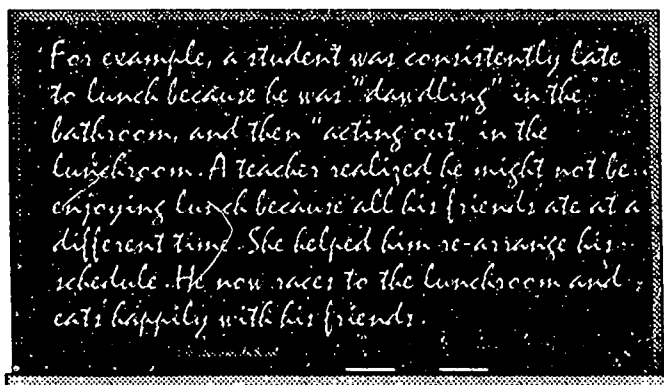 For example, a student was consistently late
to lunch because he was "dawdling" in the
bathroom, and then "acting out" in the
lunchroom. A teacher realized he might not be
enjoying lunch because all his friends ate at a
different time. She helped him re-arrange his
schedule. He now races to the lunchroom and
eats happily with his friends.